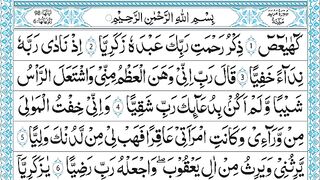 بِسْمِ اللّٰهِ الرَّحْمٰنِ الرَّحِيْمِ
كٓهٰيٰعٓصٓ ۝١ ذِكْرُ رَحْمَتِ رَبِّكَ عَبْدَهٗ زَكَرِيَّا ۝٢ اِذْ نَادٰى رَبَّهٗ
نِدَآءً خَفِيًّا ۝٣ قَالَ رَبِّ اِنِّيْ وَهَنَ الْعَظْمُ مِنِّيْ وَاشْتَعَلَ الرَّاْسُ
شَيْبًا وَّلَمْ اَكُنْۢ بِدُعَآئِكَ رَبِّ شَقِيًّا ۝٤ وَاِنِّيْ خِفْتُ الْمَوَالِيَ
مِنْ وَّرَآءِيْ وَكَانَتِ امْرَاَتِيْ عَاقِرًا فَهَبْ لِيْ مِنْ لَّدُنْكَ وَلِيًّا ۝٥
يَّرِثُنِيْ وَيَرِثُ مِنْ اٰلِ يَعْقُوْبَ ۖ وَاجْعَلْهُ رَبِّ رَضِيًّا ۝٦ يٰزَكَرِيَّآ